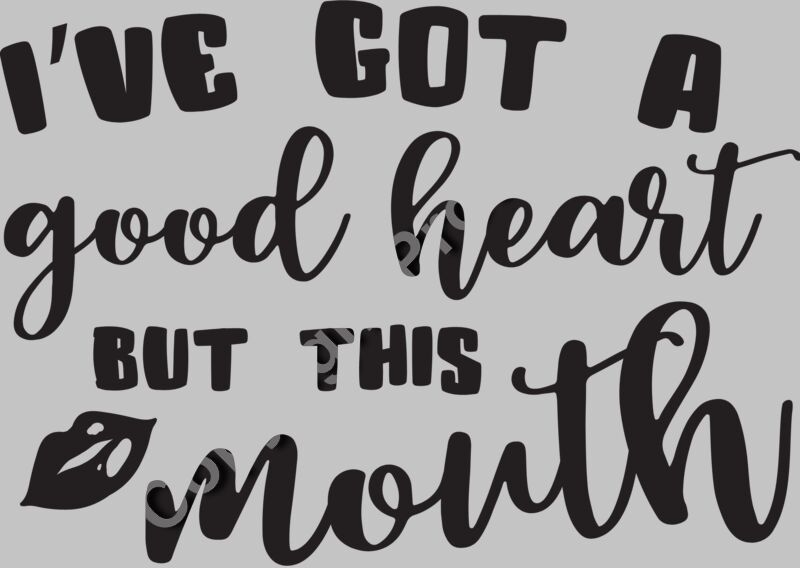 I'VE GOT A
good heart
BUT THIS
mouth